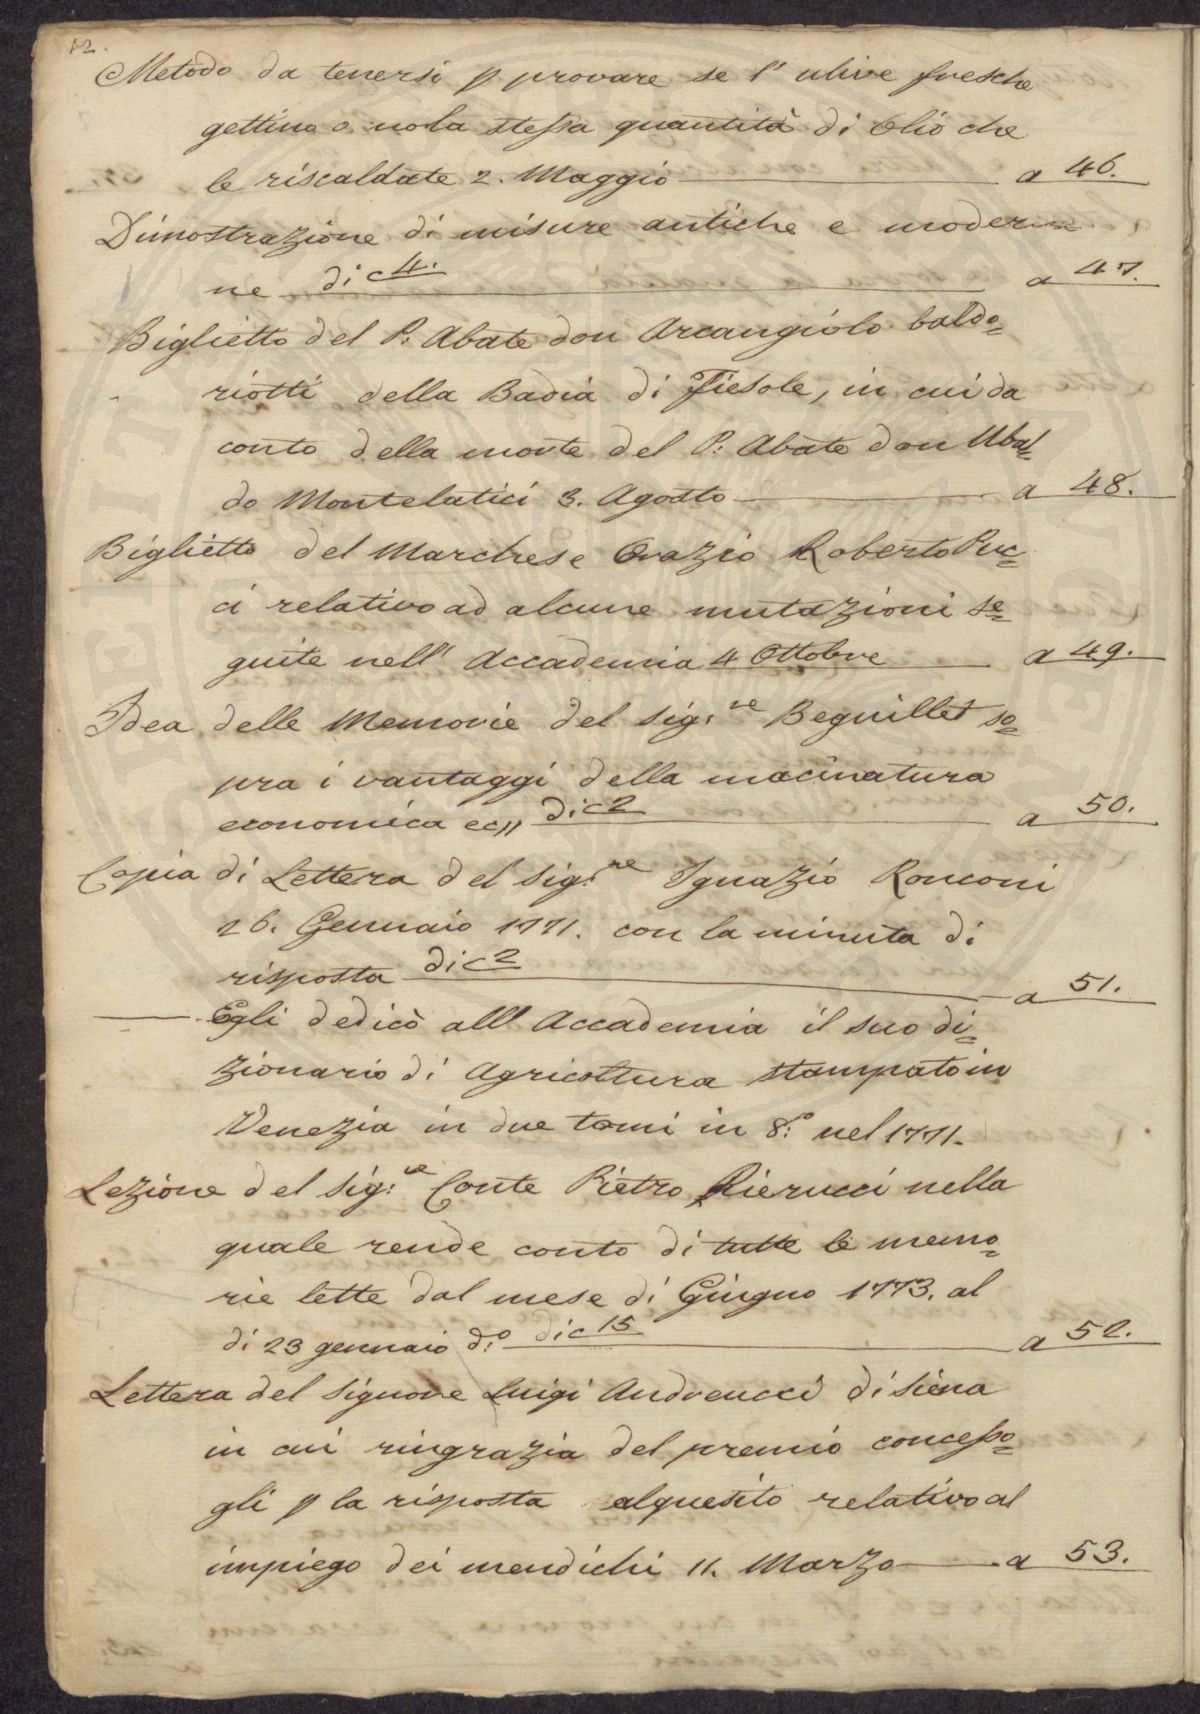 12.
Metodo da tenersi p provare se l' ulive fresche
gettino o nola stessa quantità di Olio che
le riscaldate 2. Maggio a 46.
Dimostrazione di misure antiche e moder
ne di c 4. a 47.
Biglietto del P: Abate don Arcangiolo baldo=
riotti della Badia di Fiesole, in cui da
conto della morte del P: Abate don Ubal=
do Montelatici 3. Agosto a 48.
Biglietto del Marchese Orazio Roberto Puc=
ci relativo ad alcune mutazioni se=
guite nell' Accademia 4 Ottobre a 49.
Idea delle Memorie del sig:re Beguillet so=
pra i vantaggi della macinatura
economica ec// di c 2 a 50.
Copia di Lettera del sig:re Ignazio Ronconi
26. Gennaio 1771. con la minuta di
risposta di c 2 a 51.
Egli dedicò all' Accademia il suo di=
zionario di Agricoltura stampato in
Venezia in due tomi in 8:o nel 1771.
Lezione del sig:re Conte Pietro Pierucci nella
quale rende conto di tutte le memo=
rie lette dal mese di Giugno 1773. al
di 23 gennaio d:o di c 15 a 52.
Lettera del signore Luigi Andreucci di siena
in cui ringrazia del premio concesso=
gli p la risposta al quesito relativo al
impiego dei mendichi 11. Marzo a 53.